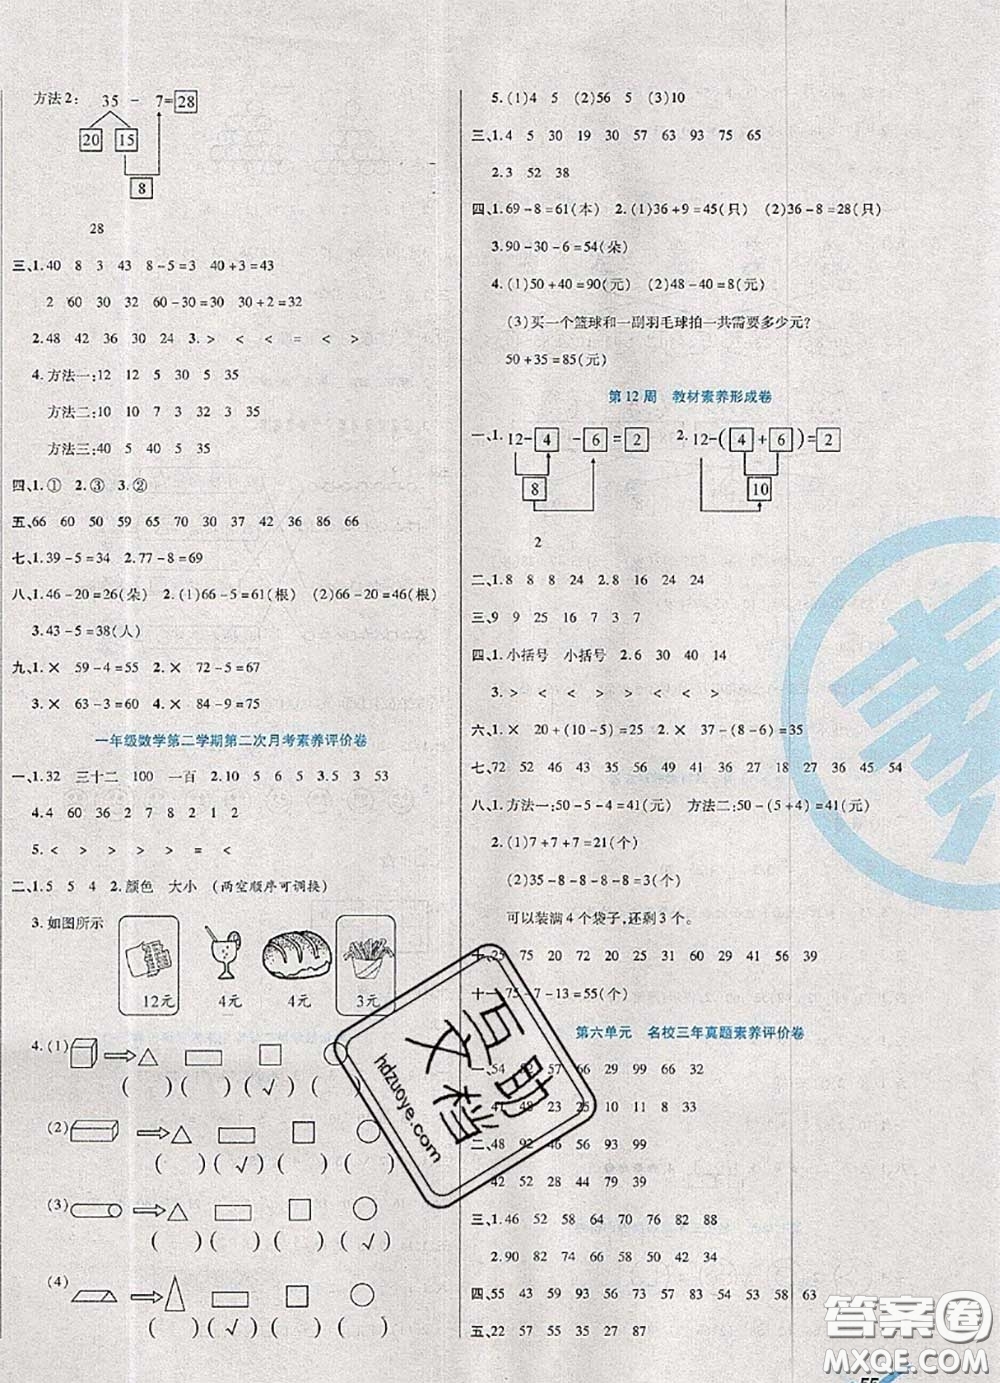 方法2: 35 - 7=28
20 15
8
28
三、1.40 8 3 43 8-5=3 40+3=43
2 60 30 32 60-30=30 30+2=32
2.48 42 36 30 24 3.> < < = < >
4.方法一:12 12 5 30 5 35
方法二:10 10 7 3 32 35
方法三:50 50 40 40 5 35
四、1.① 2.③ 3.②
五、66 60 50 59 65 70 37 42 36 86 66
七、1.39-5=34 2.77-8=69
八、1.46-20=26(朵) 2.(1)66-5=61(根) (2)66-20=46(根)
3.43-5=38(人)
九、1.× 59-4=55 2.× 72-5=67
3.× 63-3=60 4.× 84-9=75
一年级数学第二学期第二次月考素养评价卷
一、1.32 三十二 100 一百 2.10 5 5 3.5 3 53
4.4 60 36 2 7 8 2 1 2
5.< > > > > = <
二、1.5 5 4 2.颜色 大小 (两空顺序可调换)
3.如图所示
12元 4元 4元 3元
4.(1)
( ) ( ) (√) ( )
(2)
( ) (√) ( ) ( )
(3)
( ) ( ) ( ) (√)
(4)
( ) (√) ( ) ( )
5.(1)4 5 (2)56 5 (3)10
三、1.4 5 30 19 30 57 63 94 75 65
2.3 52 38
四、1.69-8=61(本) 2.(1)36+9=45(只) (2)36-8=28(只)
3.90-30-6=54(朵)
4.(1)50+40=90(元) (2)48-40=8(元)
(3)买一个篮球和一副羽毛球拍一共需要多少元?
50+35=85(元)
第12周 教材素养形成卷
一、1.12-4-6=2 2.12-(4+6)=2
8 10
2
二、1.8 8 8 24 2.8 16 24 24
三、9 9 25 16 7 9 3 7
四、1.小括号 小括号 2.6 30 40 14
3.> > > > < < < <
六、1.× 20+(10-5)=25 2.× 100-(5+10)=85
七、72 52 38 32 75 67 26 36 27 36 45 54
八、1.方法一:50-5-4=41(元) 方法二:50-(5+4)=41(元)
2.(1)7+7+7=21(个)
(2)35-8-8-8-8=3(个)
可以装满4个袋子,还剩3个。
十、25 75 20 72 20 60 29 52 41 56 12 39
十一、75-7-13=55(个)
第六单元 名校三年真题素养评价卷
一、54 82 57 66 29 99 66
41 29 24 23 25 10 11 8 33
二、48 92 46 36 93 99
42 52 28 56 58 39
三、1.46 52 58 64 76 82 88
2.90 82 74 66 58 50 42
四、56 29 62 81 59 83 54 53 58 63
五、22 57 32 27 87
互助
文档
hdzuoye.com
素
答案圈
MXQE.COM
55